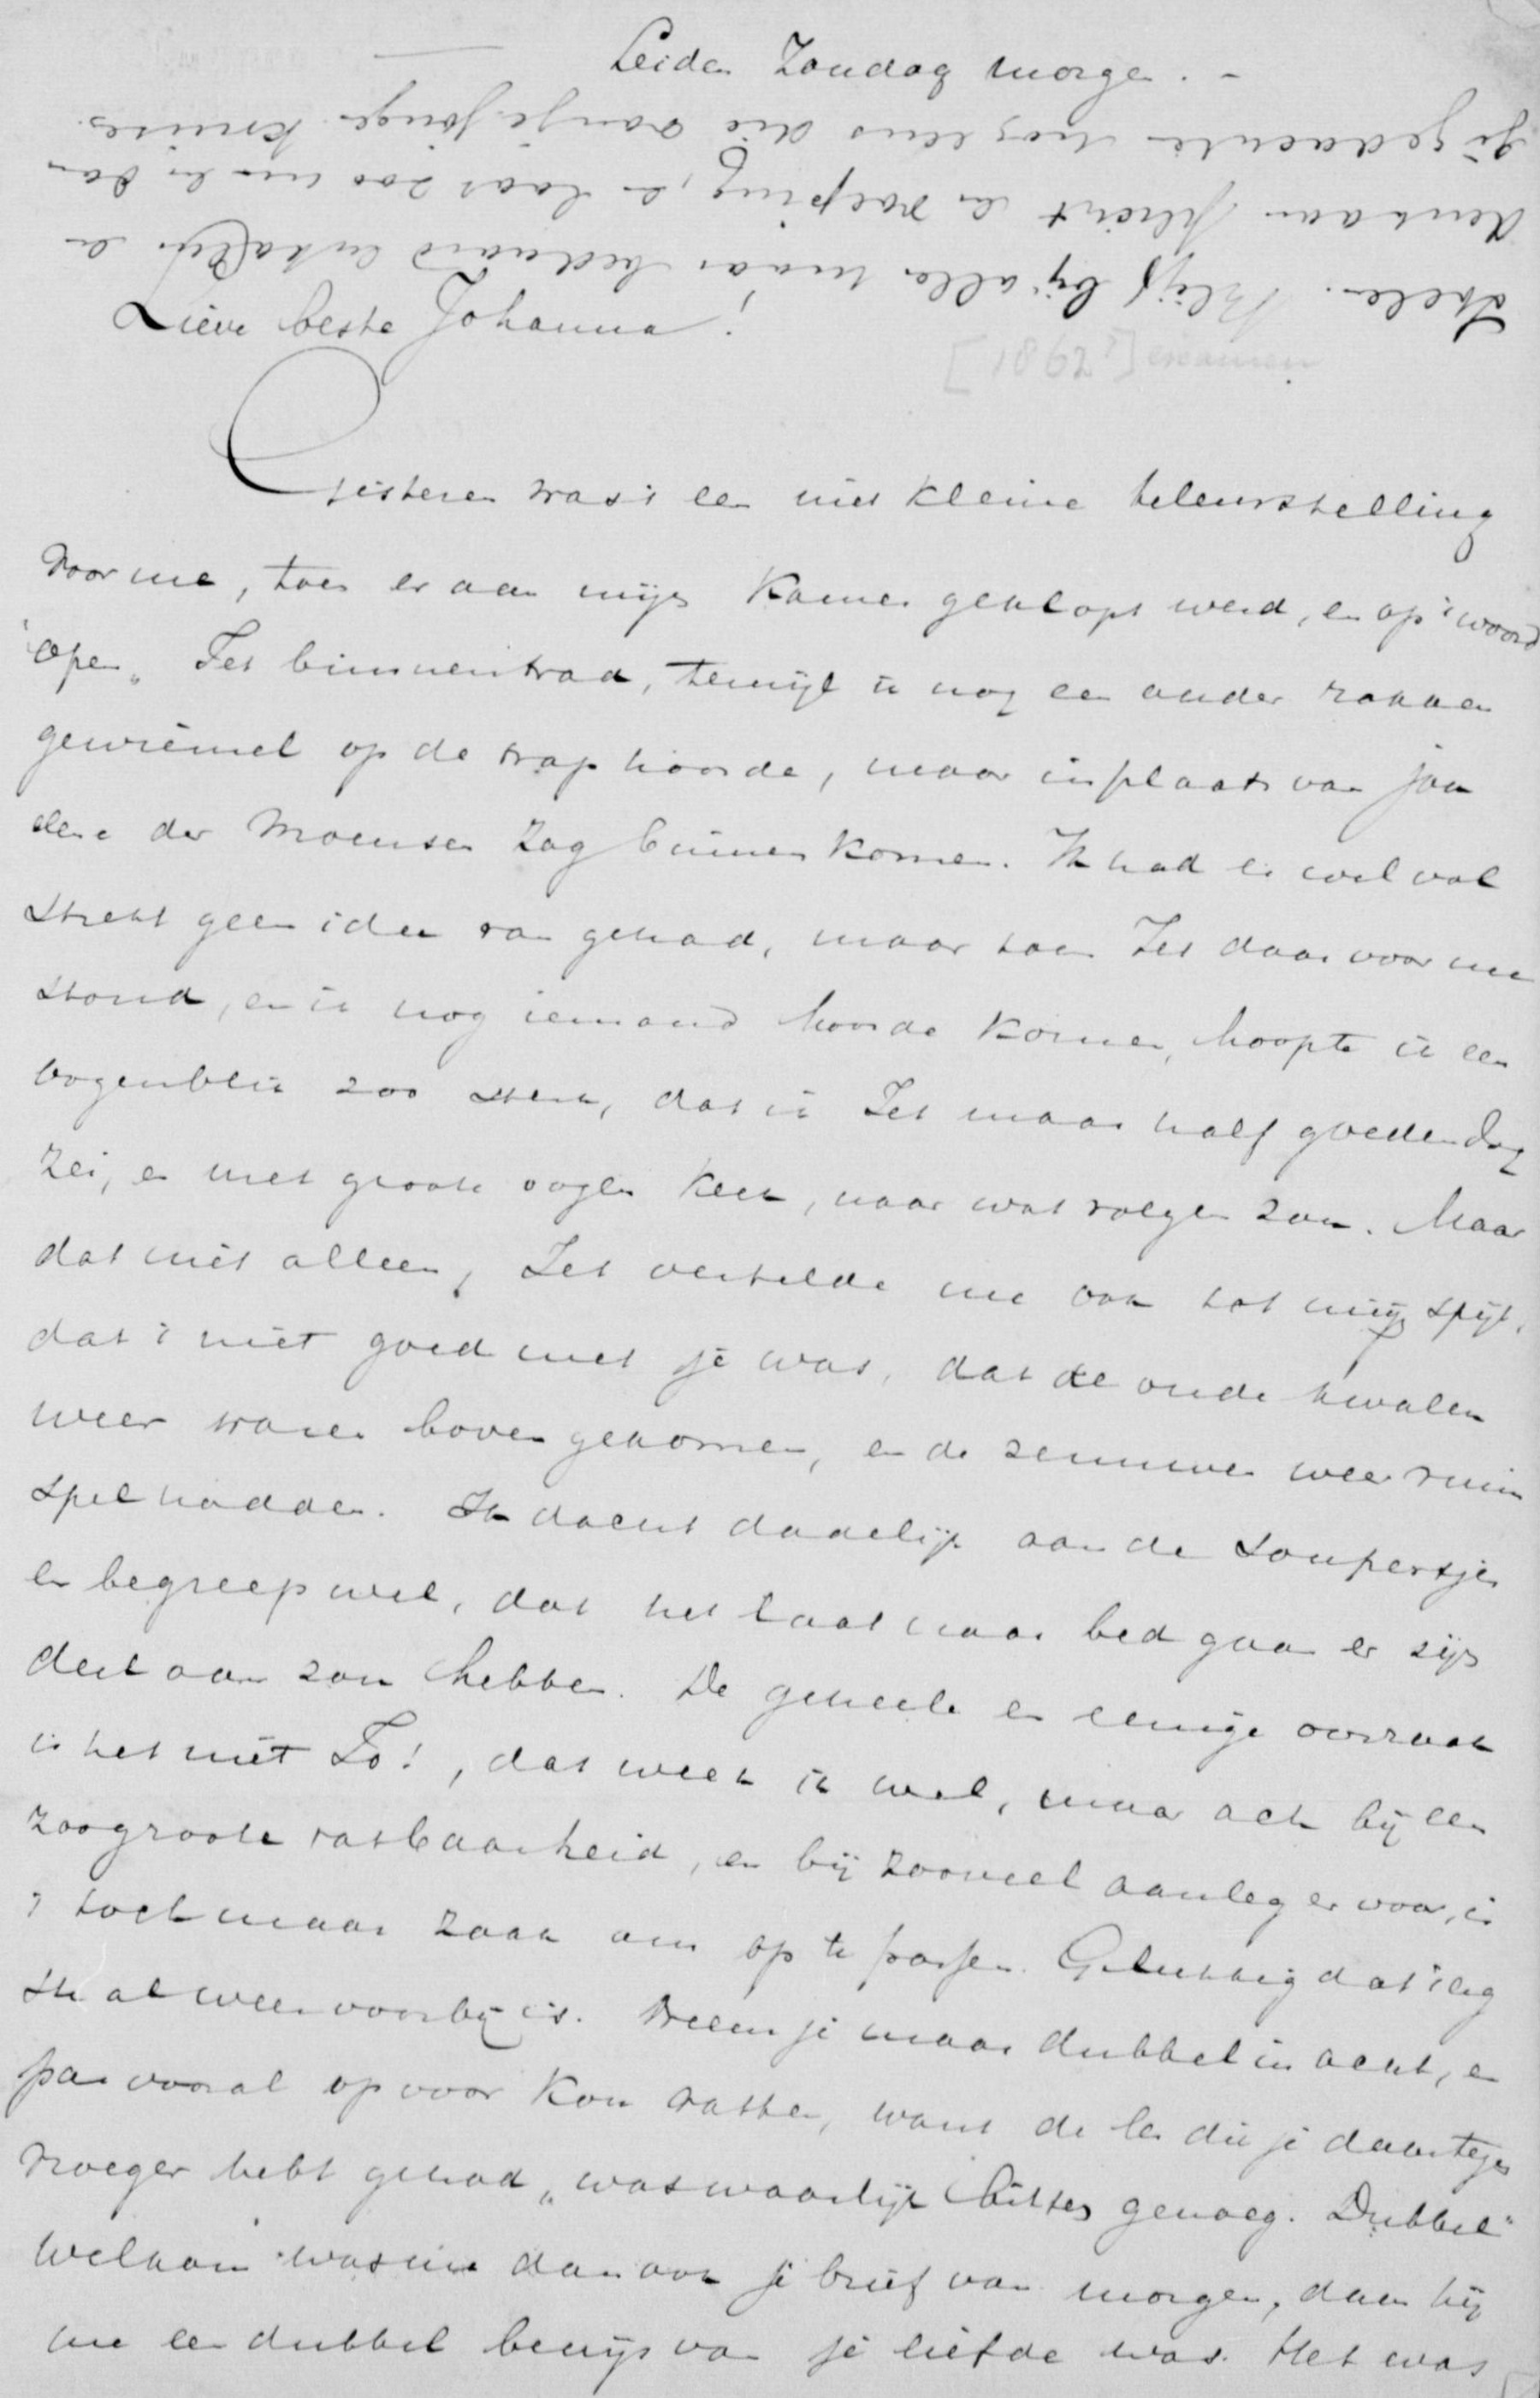 Leiden Zondag morgen. -
stelen. Blijf bij alles maar bedaard en kalm en
denk aan plicht en roeping, en laat zoo min en dan
je gedachten nog eens die oranje jonge kruises.
Lieve beste Johanna!
[1862?] examen
Gisteren was 't een niet kleine teleurstelling
voor me, toen er aan mijn kamer geklopt werd, en op 't woord
"open" Jet binnentrad, terwijl ik nog een ander rokken
gewriemel op de trap hoorde, maar in plaats van jou
eene der Moensen zag binnenkomen. Ik had er wel vol
strekt geen idee van gehad, maar toen Jet daar voor me
stond, en ik nog iemand hoorde komen, hoopte ik een
oogenblik zoo sterk, dat ik Jet maar half goedendag
zei, en met groote oogen keek, naar wat volgen zou. Maar
dat niet alleen, Jet vertelde me ook tot mijn spijt,
dat 't niet goed met je was, dat de oude kwalen
weer waren boven gekomen, en de zenuwen weer ruim
spel hadden. Ik dacht dadelijk aan de soupertjes
en begreep wel, dat het laat naar bed gaan er zijn
deel aan zou hebben. De geheele en eenige oorzaak
is het niet Jo!, dat weet ik wel, maar ach bij een
zoo groote vatbaarheid, en bij zooveel aanleg er voor, is
't toch maar zaak om op te passen. Gelukkig dat 't erg
ste al weer voorbij is. Neem je maar dubbel in acht, en
pas vooral op voor kou vatten, want de les die je daartegen
vroeger hebt gehad, was waarlijk bitter genoeg. Dubbel
welkom was me dan ook je brief van morgen, daar hij
me een dubbel bewijs van je liefde was. Het was